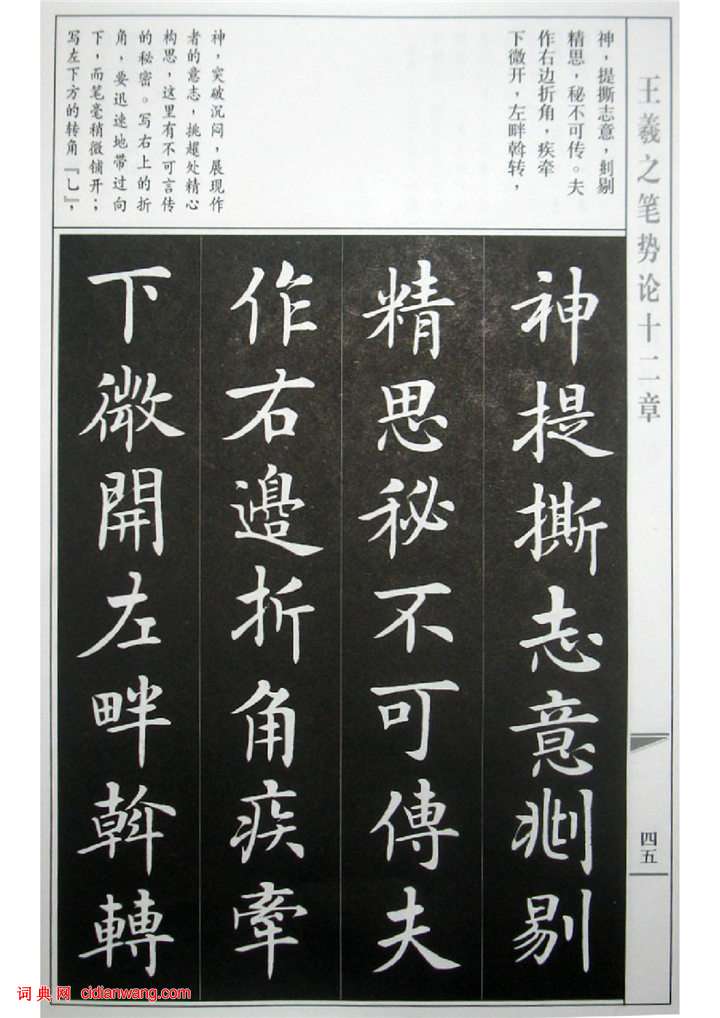 王羲之笔势论十二章
四五
神，提撕志意，剔
精思，秘不可传。夫
作右边折角，疾牵
下微开，左畔斡转，
神，突破沉闷，展现作
者的意志，挑趯处精心
构思，这里有不可言传
的秘密。写右上的折
角，要迅速地带过向
下，而笔毫稍微铺开；
写左下方的转角『乚』，
神提撕志意剔
精思秘不可傳夫
作右邊折角疾牽
下微開左畔斡轉
词典网 cidianwang.com